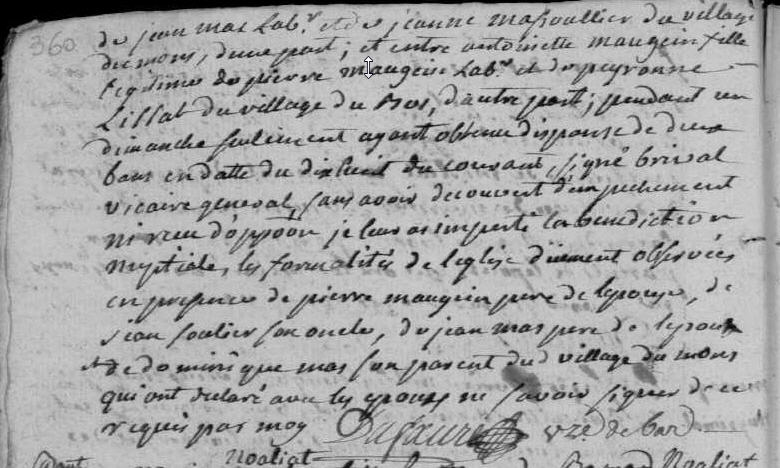 360
de jean mas lab.r et de jeanne massoullier du village
du mons, d'une part; et entre antoinette maugein fille
legitime de pierre maugein lab.r et de peyronne
Lissat du village du Bos, d'autre part; pendant un
dimanche seulement ayant obtenu dispense de deux
bans en datte du dixhuit du courant, signé brival
vicaire general, sans avoir decouvert d'empechement
ni reçu d'oppôôn je leur ai imparti la benediction
nuptiale, les formalités de l'eglise duement observées
en presence de pierre maugein pere de lepouse, de
jean soulier son oncle, de jean mas pere de lepoux
et de dominique mas son parent dud village du mons
qui ont declaré avec les epoux ne savoir signer de ce
requis par moy Dufaure vre. de bar
Noaliat